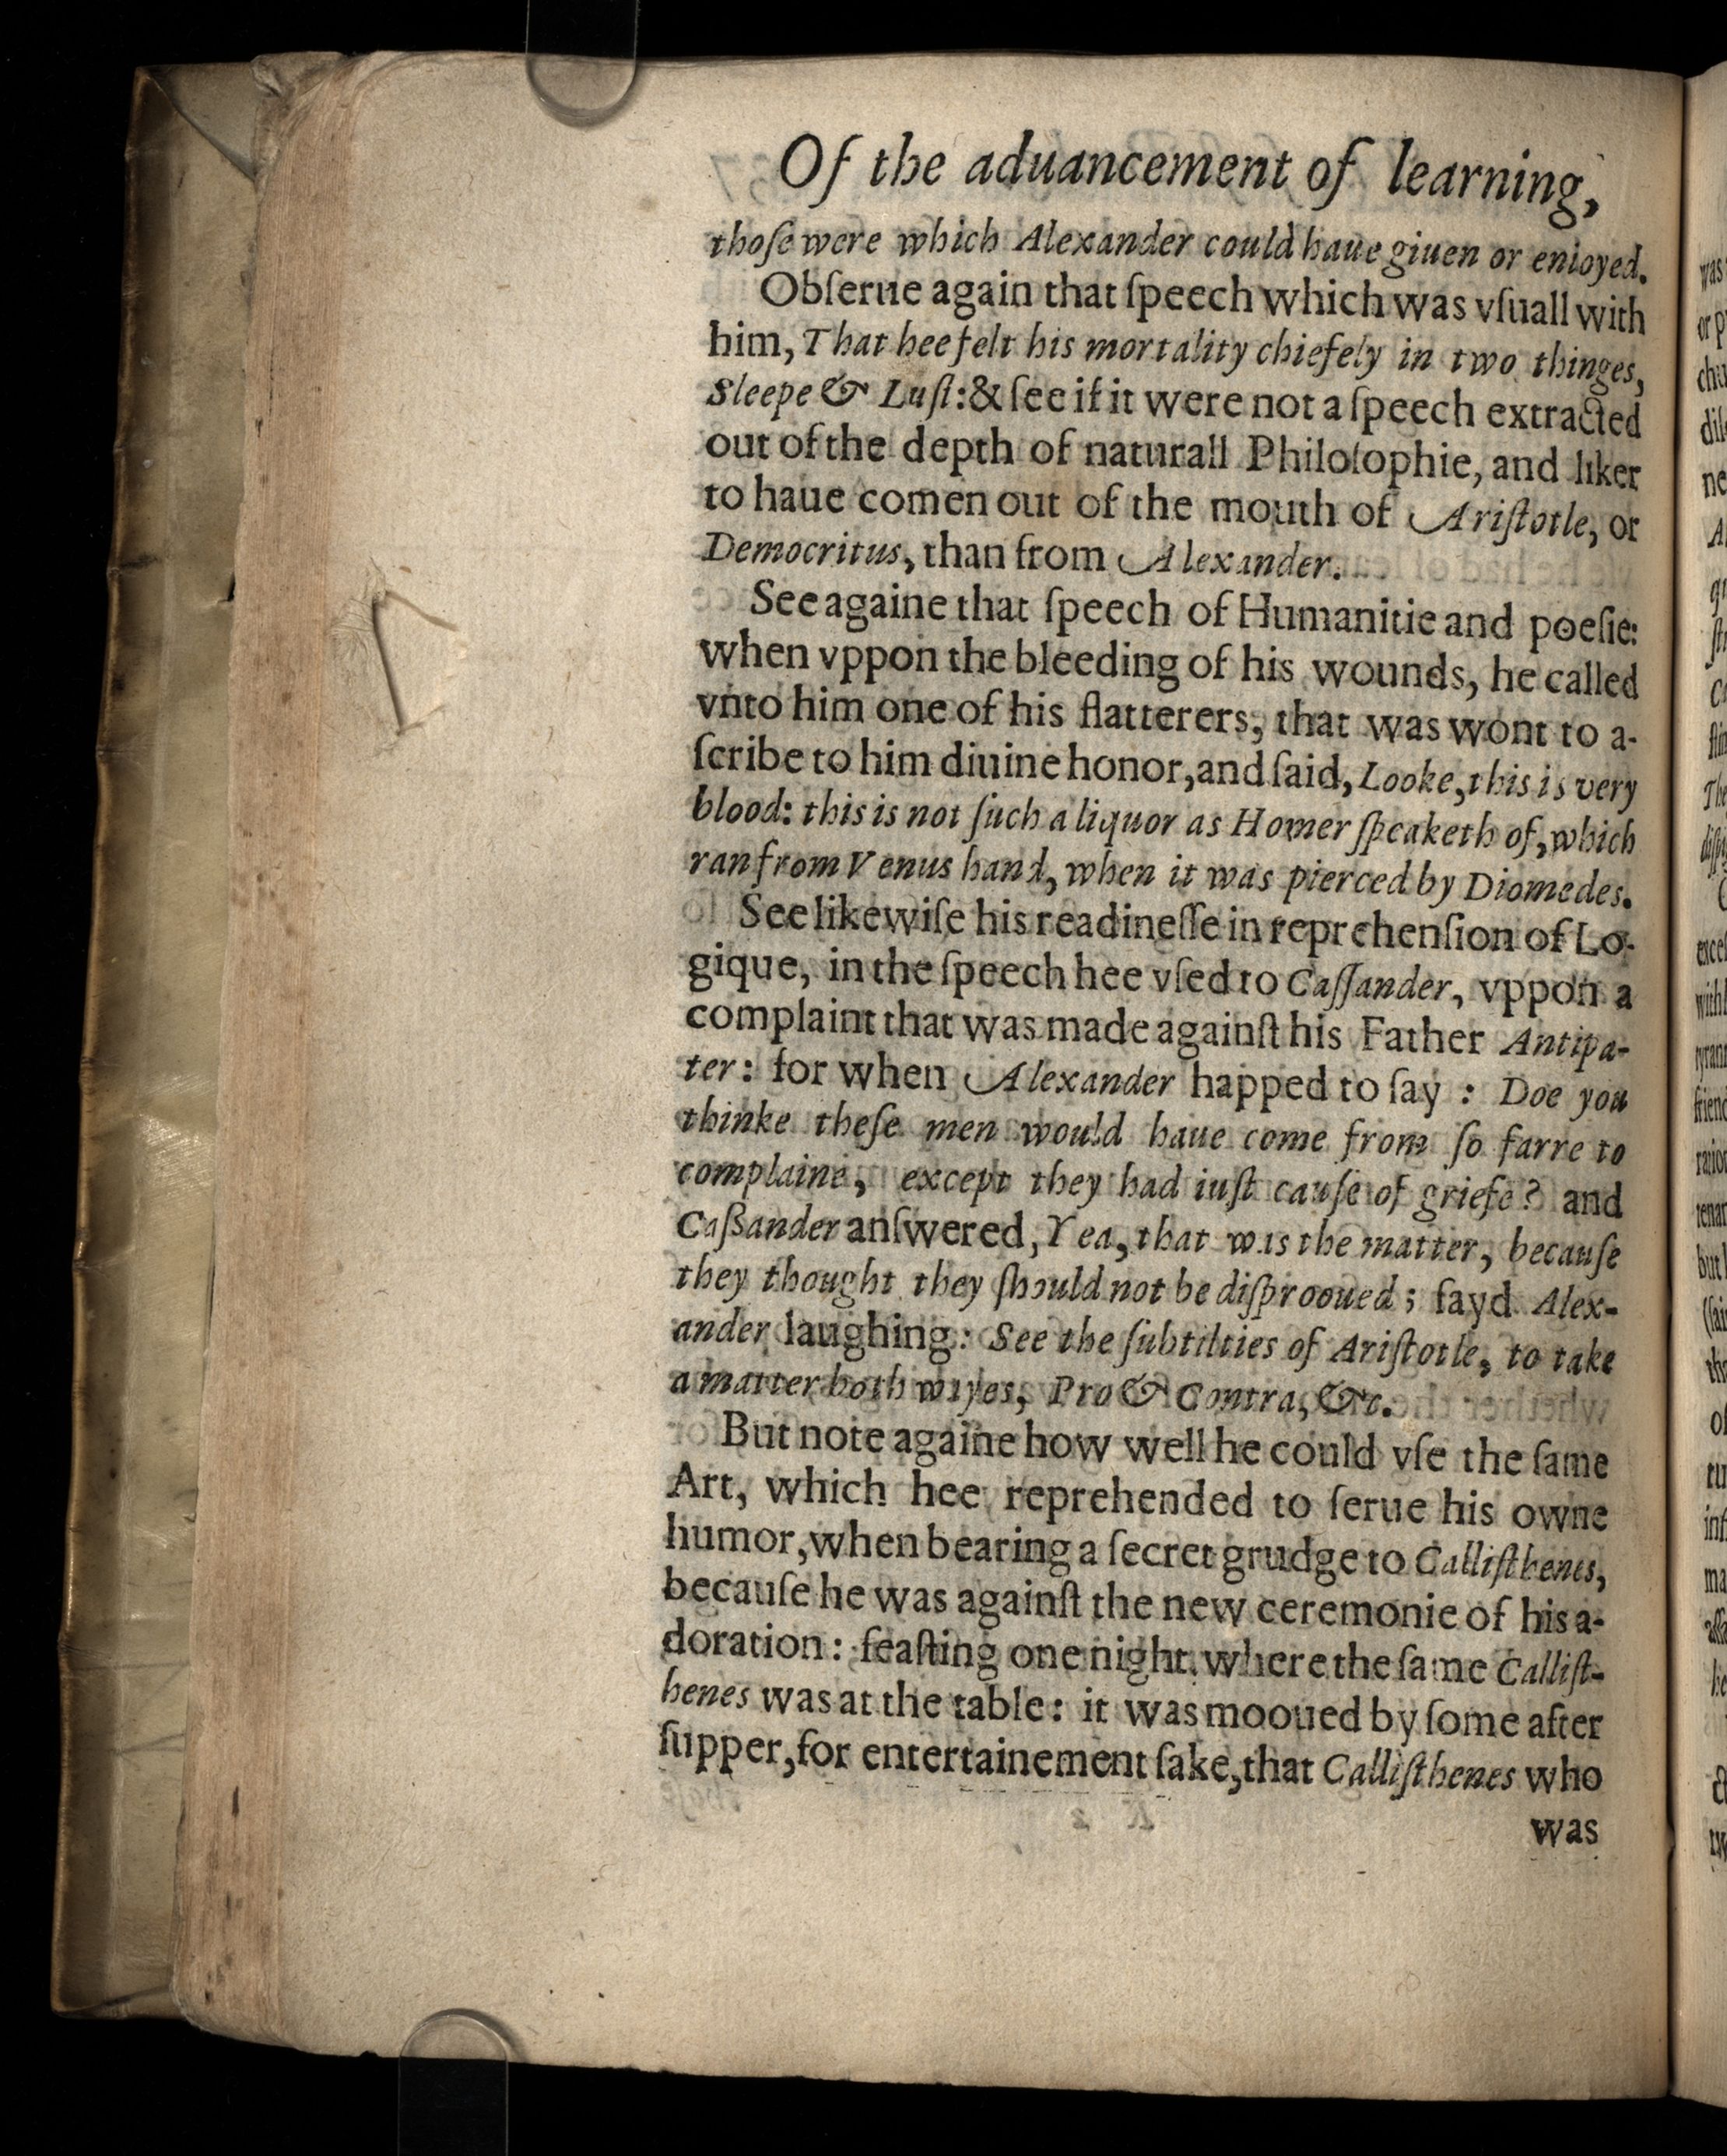 Of the aduancement of learning,
thoſe were which Alexander could haue giuen or enioyed.
Obſerue again that ſpeech which was vſuall with
him, That hee felt his mortality chiefely in two thinges,
Sleepe & Luſt: & ſee if it were not a ſpeech extracted
out of the depth of naturall Philoſophie, and liker
to haue comen out of the mouth of Ariſtotle, or
Democritus, than from Alexander.
See againe that ſpeech of Humanitie and poeſie:
when vppon the bleeding of his wounds, he called
vnto him one of his flatterers, that was wont to a-
ſcribe to him diuine honor, and ſaid, Looke, this is very
blood: this is not ſuch a liquor as Homer ſpeaketh of, which
ran from Venus hand, when it was pierced by Diomedes.
See likewiſe his readineſſe in reprehenſion of Lo-
gique, in the ſpeech hee vſed to Caſſander, vppon a
complaint that was made againſt his Father Antipa-
ter: for when Alexander happed to ſay : Doe you
thinke theſe men would haue come from ſo farre to
complaine, except they had iuſt cauſe of griefe? and
Caßander anſwered, Yea, that was the matter, becauſe
they thought they ſhould not be diſprooued ; ſayd Alex-
ander laughing: See the ſubtilties of Ariſtotle, to take
a matter both wayes, Pro & Contra, &c.
But note againe how well he could vſe the ſame
Art, which hee reprehended to ſerue his owne
humor, when bearing a ſecret grudge to Calliſthenes,
becauſe he was againſt the new ceremonie of his a-
doration: feaſting one night, where the ſame Calliſt-
henes was at the table: it was mooued by ſome after
ſupper, for entertainement ſake, that Calliſthenes who
was